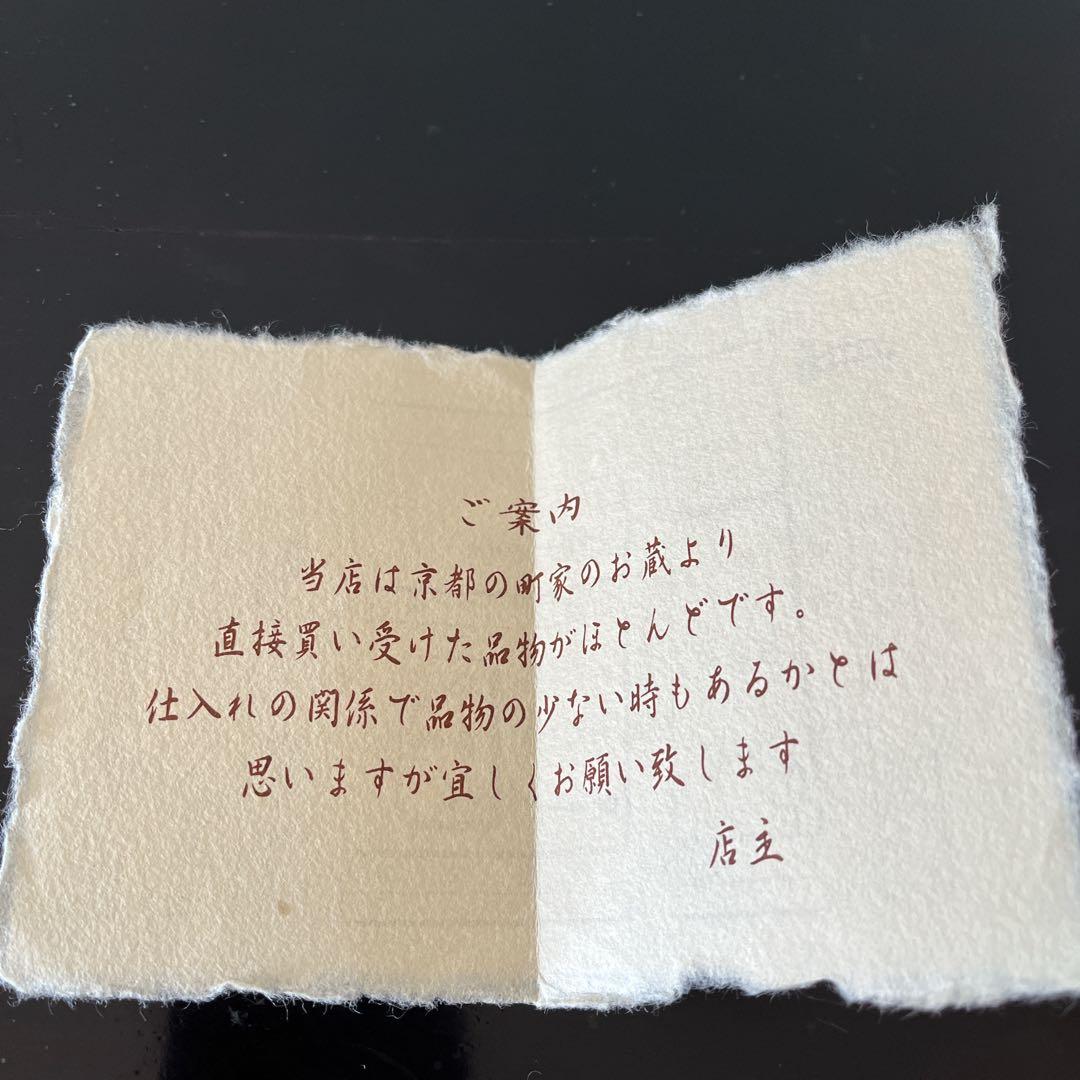 ご案内
当店は京都の町家のお蔵より
直接買い受けた品物がほとんどです。
仕入れの関係で品物の少ない時もあるかとは
思いますが宜しくお願い致します
店主